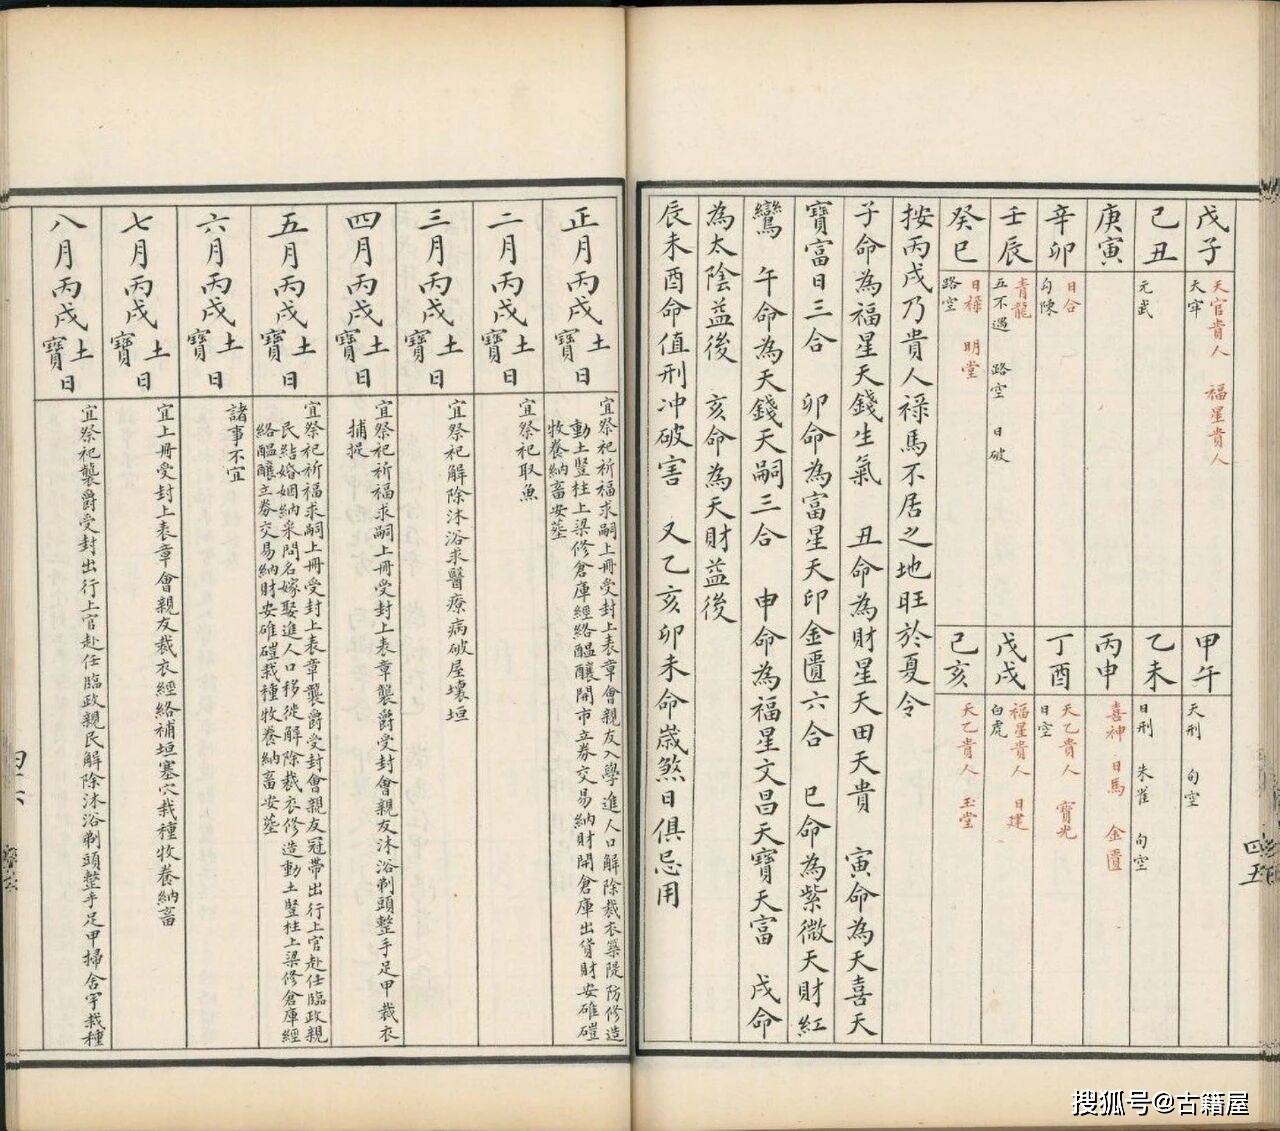 戊子
天官貴人 福星貴人
天牢
己丑
元武
庚寅
辛卯
日合
勾陳
壬辰
青龍
五不遇 路空 日破
癸巳
日祿 明堂
路空
甲午
天刑 旬空
乙未
日刑 朱雀 旬空
丙申
喜神 日馬 金匱
丁酉
天乙貴人 寶光
日空
戊戌
福星貴人 日建
白虎
己亥
天乙貴人 玉堂
按丙戌乃貴人祿馬不居之地旺於夏令
子命為福星天錢生氣 丑命為財星天田天貴 寅命為天喜天
寶富日三合 卯命為富星天印金匱六合 巳命為紫微天財紅
鸞 午命為天錢天嗣三合 申命為福星文昌天寶天富 戌命
為太陰益後 亥命為天財益後
辰未酉命值刑沖破害 又乙亥卯未命歲煞日俱忌用
四五
正月丙戌土寶日
宜祭祀祈福求嗣上冊受封上表章會親友入學進人口解除裁衣築隄防修造
動土豎柱上梁修倉庫經絡醞釀開市立券交易納財開倉庫出貨財安碓磑
牧養納畜安葬
二月丙戌土寶日
宜祭祀取魚
三月丙戌土寶日
宜祭祀解除沐浴求醫療病破屋壞垣
四月丙戌土寶日
宜祭祀祈福求嗣上冊受封上表章襲爵受封會親友沐浴剃頭整手足甲裁衣
捕捉
五月丙戌土寶日
宜祭祀祈福求嗣上冊受封上表章襲爵受封會親友冠帶出行上官赴任臨政親
民結婚姻納采問名嫁娶進人口移徙解除裁衣修造動土豎柱上梁修倉庫經
絡醞釀立券交易納財安碓磑栽種牧養納畜安葬
六月丙戌土寶日
諸事不宜
七月丙戌土寶日
宜上冊受封上表章會親友裁衣經絡補垣塞穴栽種牧養納畜
八月丙戌土寶日
宜祭祀襲爵受封出行上官赴任臨政親民解除沐浴剃頭整手足甲掃舍宇栽種
四六
搜狐号@古籍屋